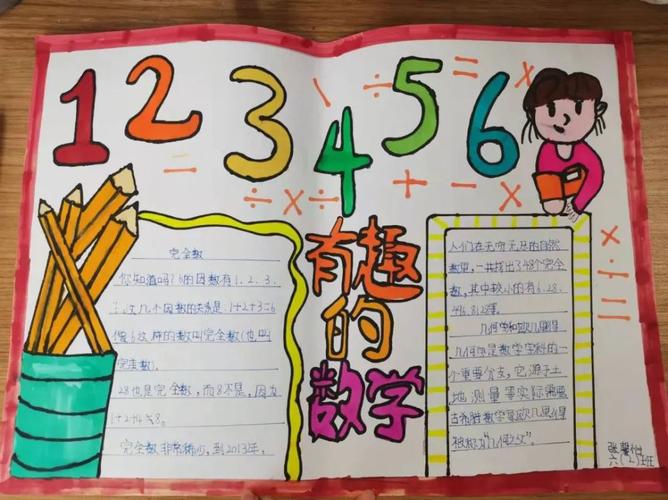 1 2 3 4 5 6
有趣
的
数学
完全数
你知道吗？6的因数有1、2、3、
这几个因数的关系是：1+2+3=6
像6这样的数叫完全数（也叫
完美数）。
28也是完全数，而8不是，因为
1+2+4≠8。
完全数非常稀少，到2013年，
人们在无穷无尽的自然
数里，一共找出了48个完全
数，其中较小的有6、28、
496、8128等。
几何学和欧几里得
几何学是数学学科的一
个重要分支，它源于土
地测量等实际需要
古希腊数学家欧几里得
被称为“几何之父”。
六（2）班